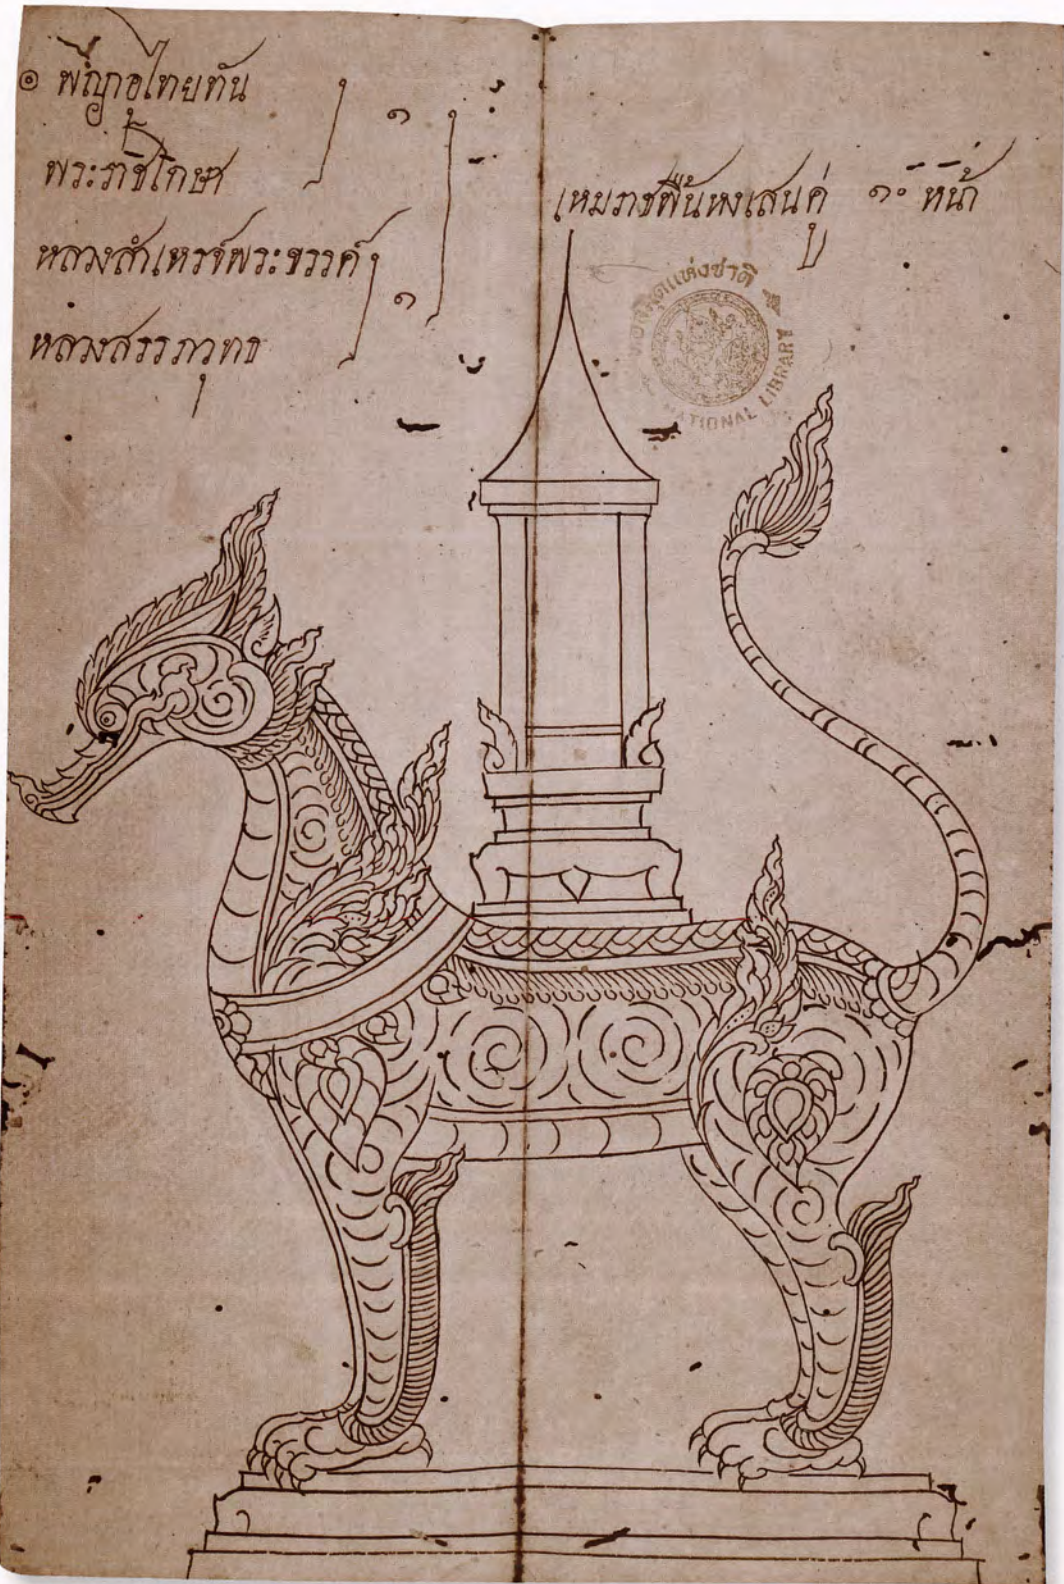 ๏ พญาอุไทยทัน
พระราชโกษา ๑
หลวงสำเหรจ์พระขรรค์
หลวงสรรภาวุทธ ๑
เหมราชพื้นหงเสนคู่ ๑ะ หน้า
หอสมุดแห่งชาติ
NATIONAL LIBRARY